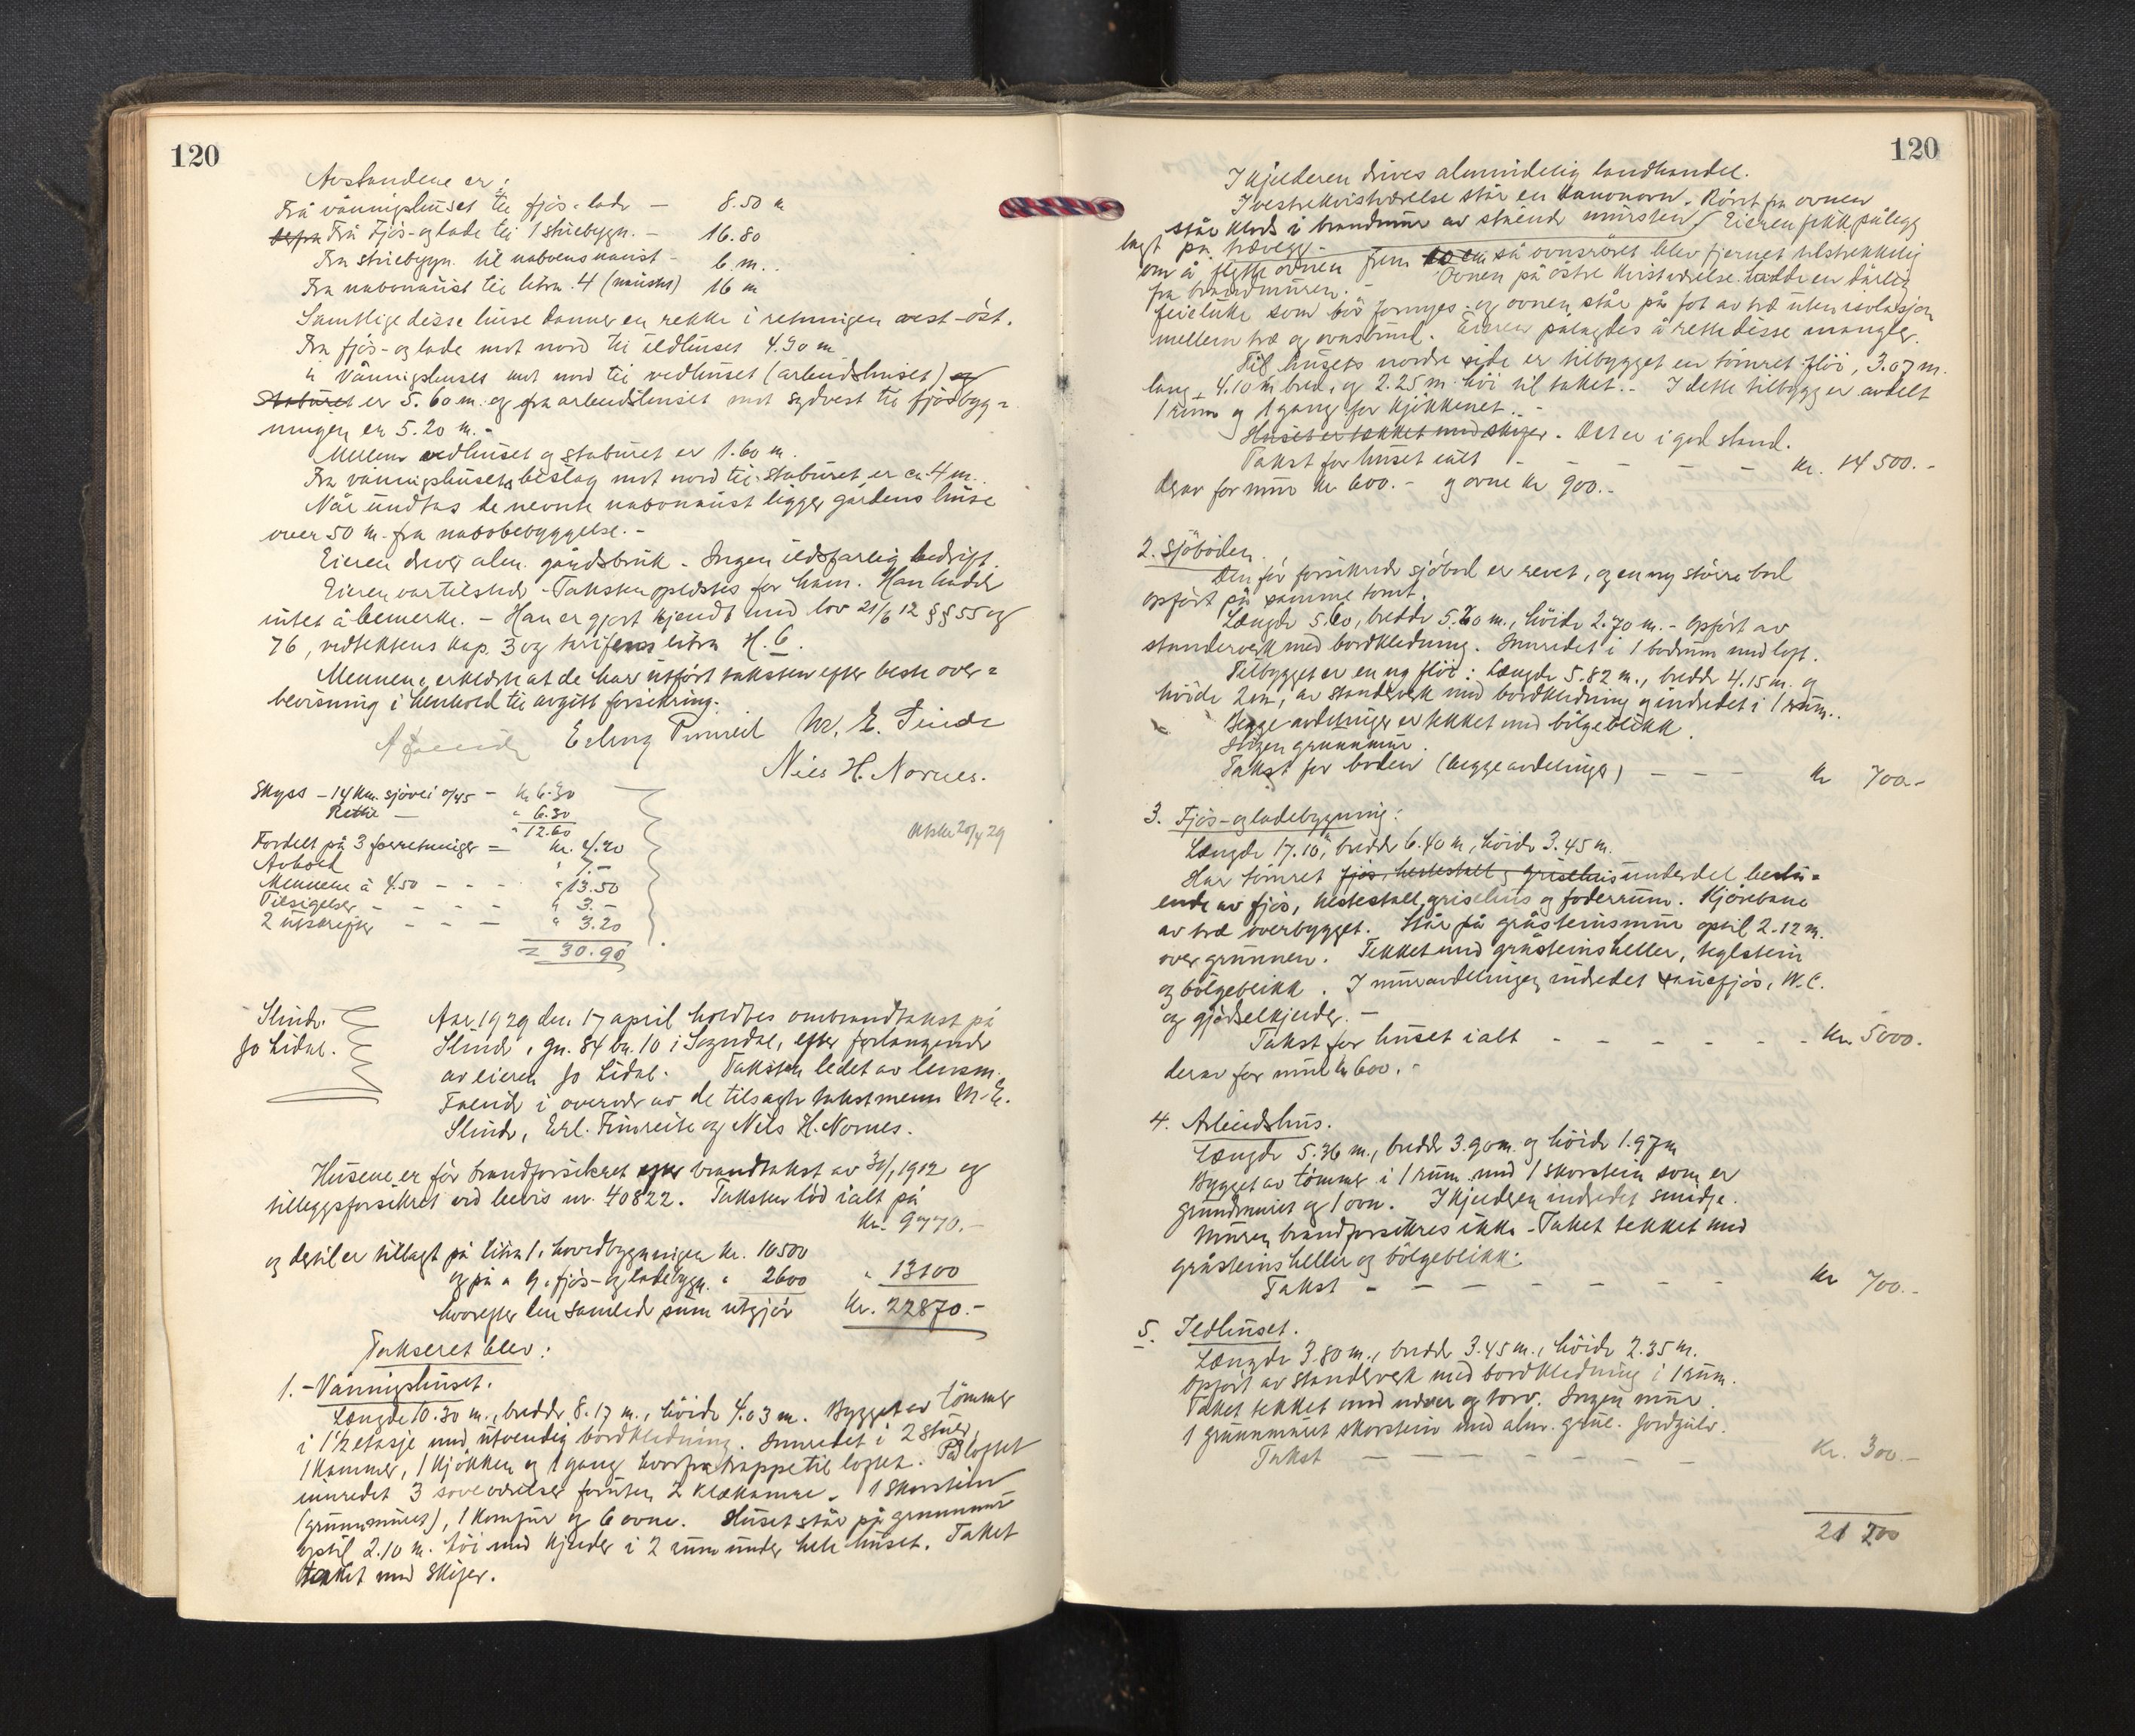 120
Avstandene er:
Frå våningshuset til fjös-lade — 8.50 m
Frå Fjös- og lade til 1 — 16.80
Fra til naboens naust - 6 m.
Fra nabonaust til litra. 4 (naustet) 16 m
Samtlige disse huse danner en rekke i retningen vest-öst.
Fra fjös- og lade mot nord til ildhuset 4.90 m
" Våningshuset mot nord til vedhuset (arbeidshuset) og
Staburet er 5.60 m. og fra arbeidshuset mot sydvest til fjösbyg=
ningen er 5.20 m. -
Mellem vedhuset og staburet er 1.60 m.
Fra våningshusets bislag mot nord til staburet er ca. 4 m.
Når undtas de nevnte nabonaust ligger gårdens huse
over 50 m. fra nabobebyggelse. -
Eieren driver alm. gårdsbruk - Ingen ildsfarlig bedrift.
Eieren var tilstede - Taksten oplæstes for ham. Han hadde
intet å bemerke. - Han er gjort kjendt med lov 21/6 12 §§ 55 og
76, vedtektens kap. 3 og tarifens litra H. C.
Mennene erklærte at de har utfört taksten efter beste over=
bevisning i henhold til avgitt forsikring.
Erling Finnreit M. E. Slinde
Nils H. Nornes.
Skyss - 14 km. sjövei o/45 - kr 6.30
Retur — " 6.30
" 12.60
Fordelt på 3 forretninger = kr. 4.20
Avhold " 7.-
Mennene à 4.50 - - - " 13.50
Tilsigelser - - - - " 3.-
2 utskrifter - - - " 3.20
= 30.90
Utskr 20/4 29
Slinde.
Jo Lidal.
Aar 1929 den 17 april holdtes ombrandtakst på
Slinde, gn. 84 bn. 10 i Sogndal, efter forlangende
av eieren Jo Lidal. Taksten ledet av lensm.
Faleide i overvær av de tilsagte takstmenn M. E.
Slinde, Erl. Finnreite og Nils H. Nornes.
Husene er för brandforsikret efter brandtakst av 30/1 1912 og
tilleggsforsikret ved bevis nr. 40822. Taksten löd ialt på
Kr. 9770.-
og dertil er tillagt på litra 1, hovedbygningen kr. 10500
og på " 9, fjös- og ladebygn. " 2600 " 13100
hvorefter den samlede sum utgjör Kr. 22870.-
Takseret blev:
1. - Våningshuset.
Længde 10.30 m., bredde 8.17 m., höide 4.03 m. Bygget av tömmer
i 1½ etasje med utvendig bordkledning. Innredet i 2 stuer,
1 kammer, 1 kjökken og 1 gang hvorfra trappe til loftet. På loftet
innredet 3 soveværelser foruten 2 klækamre. 1 skorstein
(grunnmuret), 1 komfur og 6 ovne. Huset står på grunnmur
optil 2.10 m. höi med kjelder i 2 rum under hele huset. Taket
tekket med skifer.
120
I kjelderen drives almindelig landhandel.
I vestre kvistværelse står en kanonovn. Röret fra ovnen
står klods i brandmur av stående mursten / Eieren fikk pålegg
lagt på trævegg -
om å flytte ovnen frem så ovnsröret blev fjernet tilstrekkelig
fra brandmuren. - Ovnen på östre kvistværelse hadde en dårlig
feieluke som bör fornyes og ovnen står på fot av træ uten isolasjon
mellem træ og ovnsbund. Eieren pålagdes å rette disse mangler.
Til husets nordre side er tilbygget en tömret flöi, 3.07 m.
lang, 4.10 m bred, og 2.25 m. höi til taket. - I dette tilbygg er avdelt
1 rum og 1 gang for kjökkenet. -
Huset er tekket med skifer. Det er i god stand.
Takst for huset ialt - - - - - Kr. 14 500.-
derav for mur kr 600.- og ovne kr 900.-
2. Sjöboden.
Den för forsikrede sjöbod er revet, og en ny större bod
opfört på samme tomt.
Længde 5.60, bredde 5.20 m., höide 2.70 m. - Opfört av
standerverk med bordkledning. Innredet i 1 bodrum med loft.
Tilbygget er en ny flöi: Længde 5.82 m., bredde 4.15 m. og
höide 2 m, av standerverk med bordkledning og indredet i 1 rum.
Begge avdelinger er tekket med bölgeblikk.
Ingen grunnmur.
Takst for boden (begge avdelinger) - - - kr 700.-
3. Fjös- og ladebygning:
Længde 17.10, bredde 6.40 m, höide 3.45 m.
Har tömret fjös, hestestall, grisehus underdel bestå=
ende av fjös, hestestall, grisehus og foderrum. Kjörebane
av træ overbygget. Står på gråsteinsmur optil 2.12 m.
over grunnen. Tekket med gråsteinsheller, teglstein
og bölgeblikk. I muravdelingen indredet sauefjös, W.C.
og gjödselkjelder. -
Takst for huset ialt - - - - - - Kr. 5000.
derav for mur kr 600.-
4. Arbeidshus.
Længde 5.36 m., bredde 3.90 m. og höide 1.97 m
Bygget av tömmer i 1 rum med 1 skorstein som er
grundmuret og 1 ovn. I kjelderen indredet smidje.
Muren brandforsikres ikke. Taket tekket med
gråsteinsheller og bölgeblikk.
Takst - - - - - - - kr 700.-
5. Ildhuset.
Længde 3.80 m., bredde 3.45 m., höide 2.35 m.
Opfört av standerverk med bordkledning i 1 rum.
Taket tekket med næver og torv. Ingen mur.
1 grunnmuret skorstein med alm. grue. Jordgulv.
Takst - - - - - - Kr. 300.-
21 200